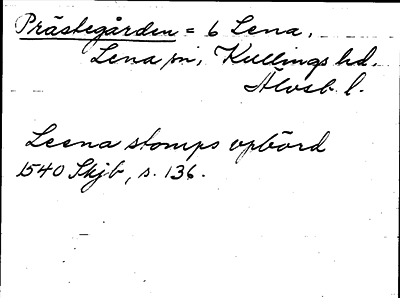 Prästegården = 6 Lena,
Lena sn, Kullings hd.
Älvsb. l.
Leena stomps opbörd
1540 Skjb, s. 136.